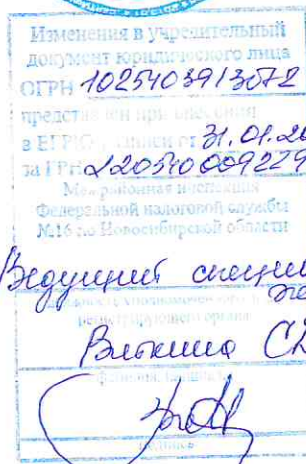 Изменения в учредительный
документ юридического лица
ОГРН 1025403913072
представлен при внесении
в ЕГРЮЛ записи от 31.01.20
за ГРН 220540009279
Межрайонная инспекция
Федеральной налоговой службы
№16 по Новосибирской области
Ведущий специ
должность уполномоченного
регистрирующего органа
фамилия, инициалы
подпись